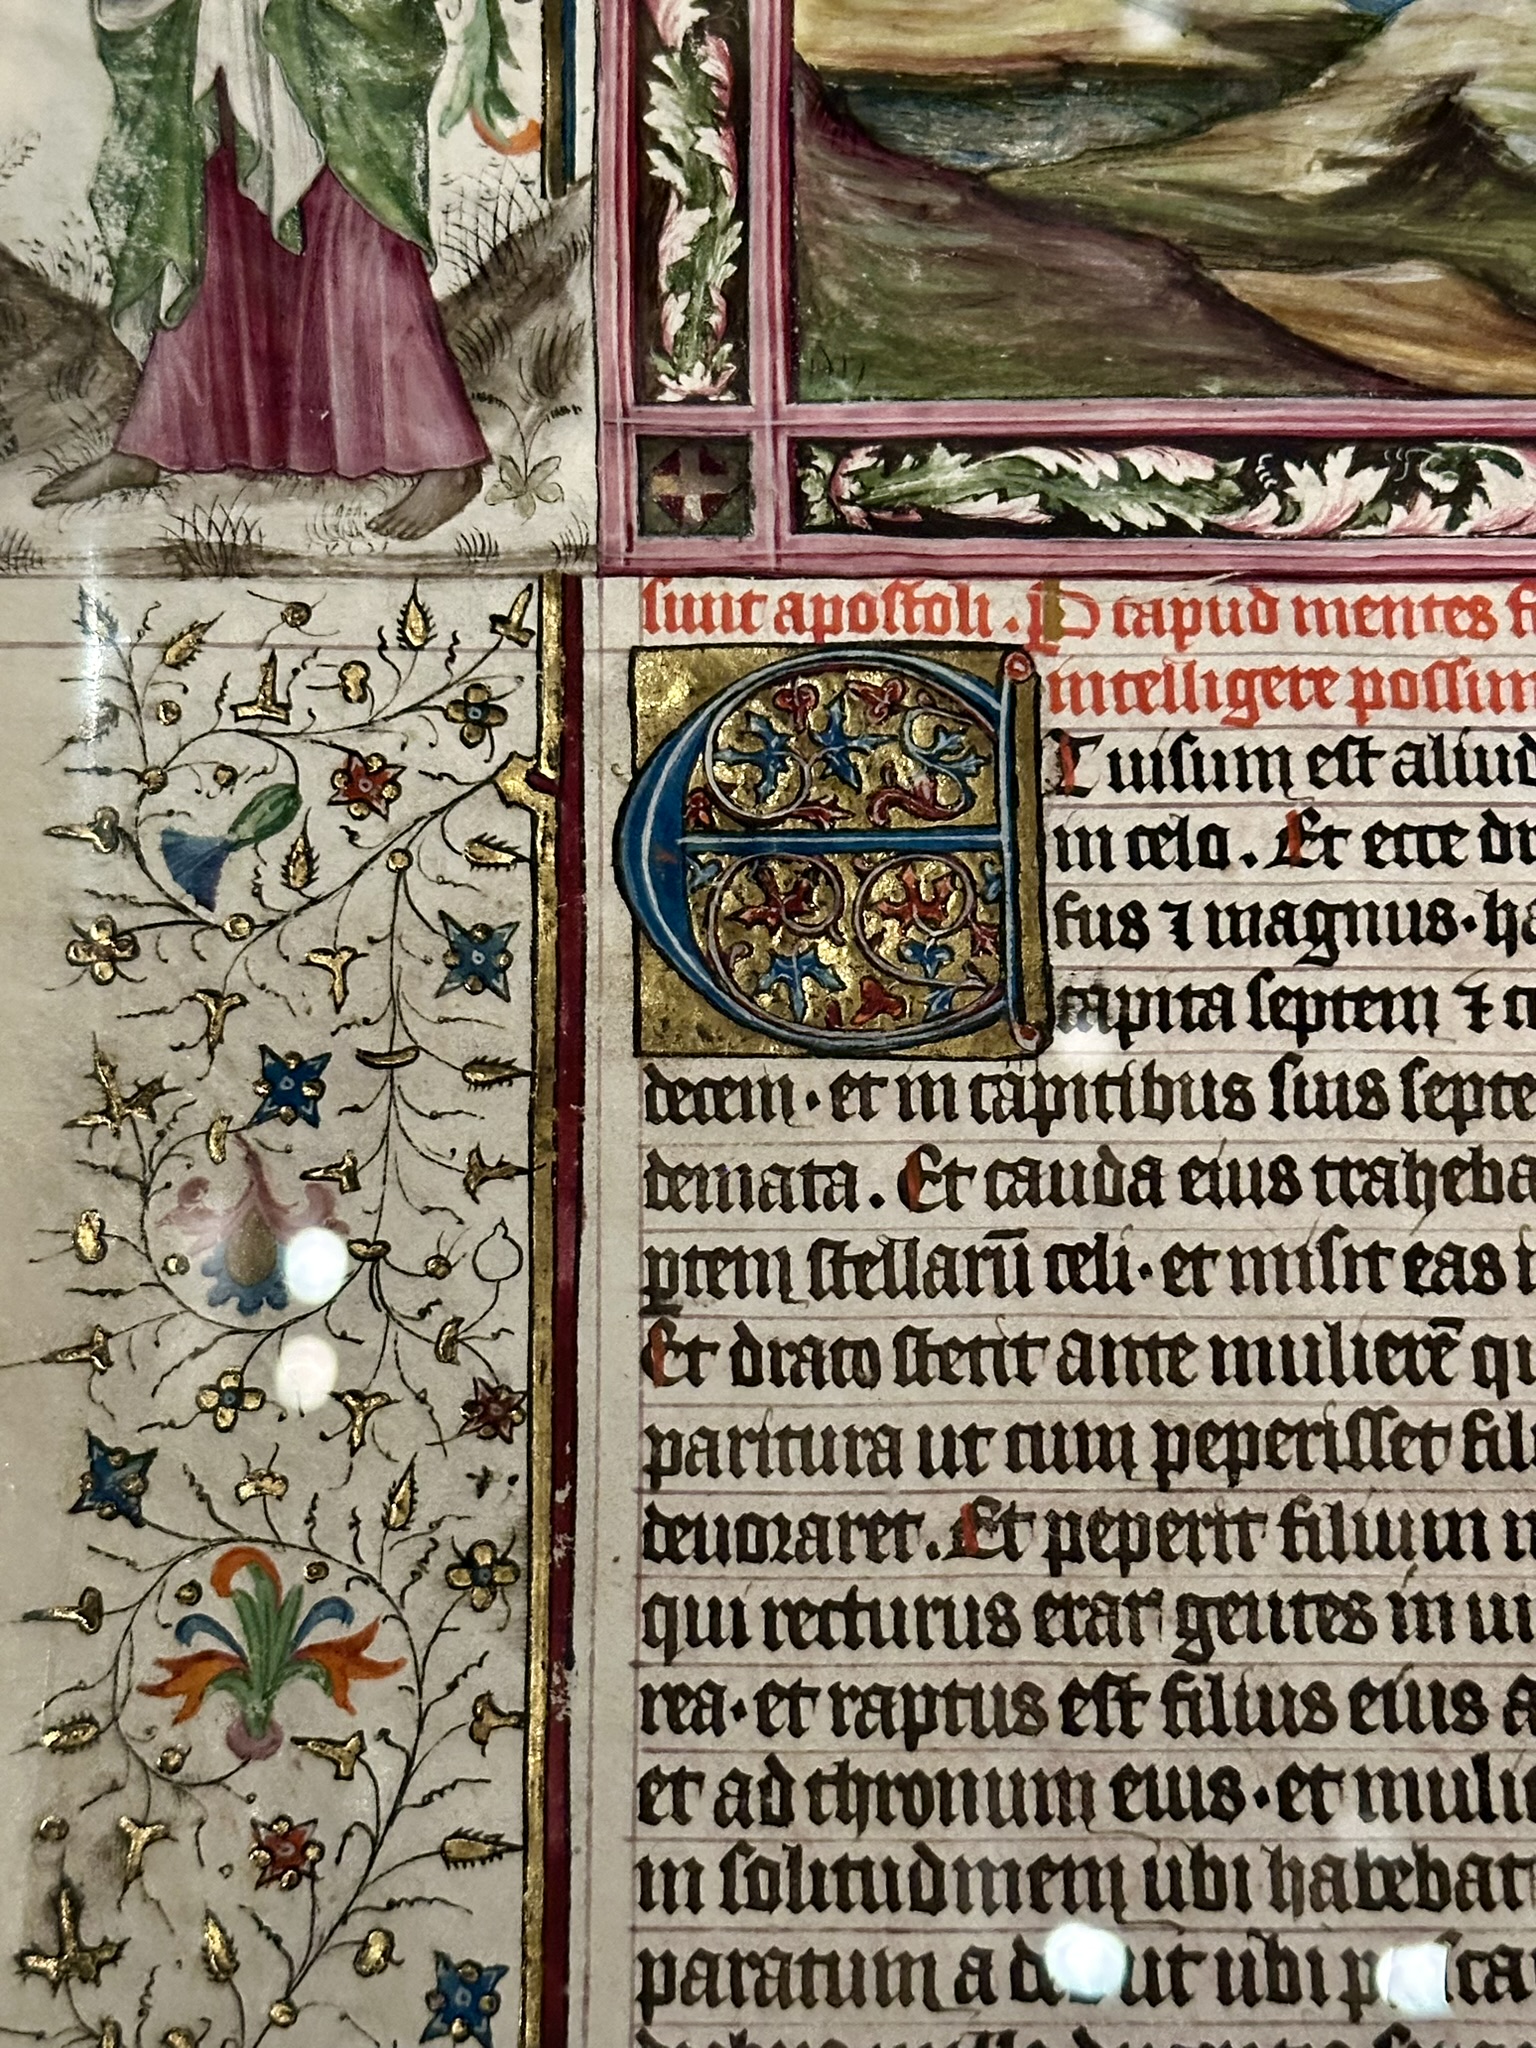 sunt apostoli. P capud mentes
intelligere possim
ET uisum est aliud
in celo. Et ecce dr
fus ⁊ magnus· ha
capita septem ⁊ c
decem· et in capitibus suis septe
demata. Et cauda eius traheba
ptem stellarū celi· et misit eas i
Et draco stetit ante mulierē qu
paritura ut cum peperisset fili
deuoraret. Et peperit filium m
qui recturus erat gentes in ui
rea· et raptus est filius eius a
et ad thronum eius· et muli
in solitudinem ubi habebat
paratum a ut ubi